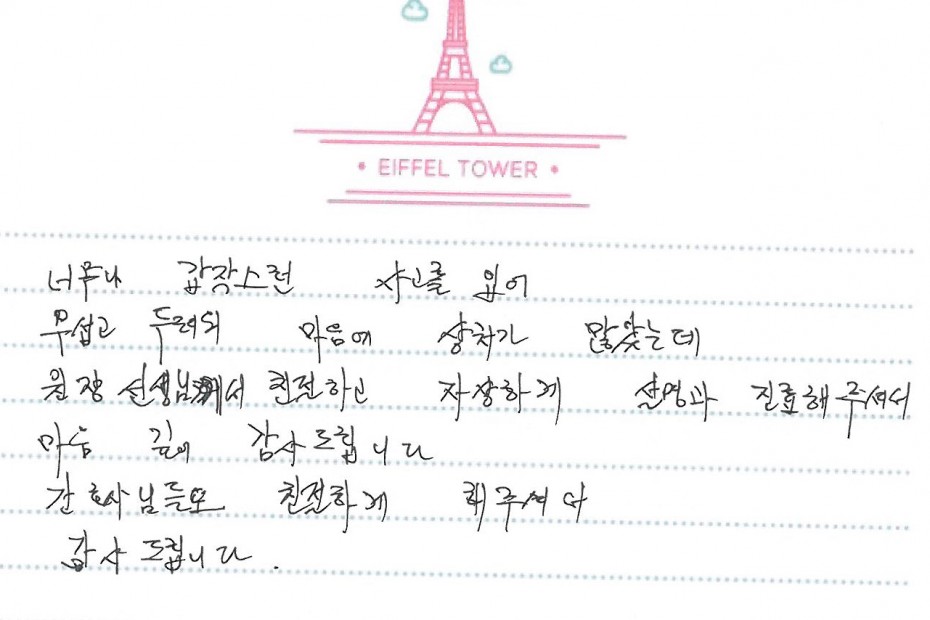 • EIFFEL TOWER •
너무나 갑작스런 사고를 입어
무섭고 두려워 마음에 상처가 많았는데
원장 선생님께서 친절하고 자상하게 설명과 진료해 주셔서
마음 깊이 감사드립니다
간호사님들도 친절하게 해주셔서
감사드립니다.